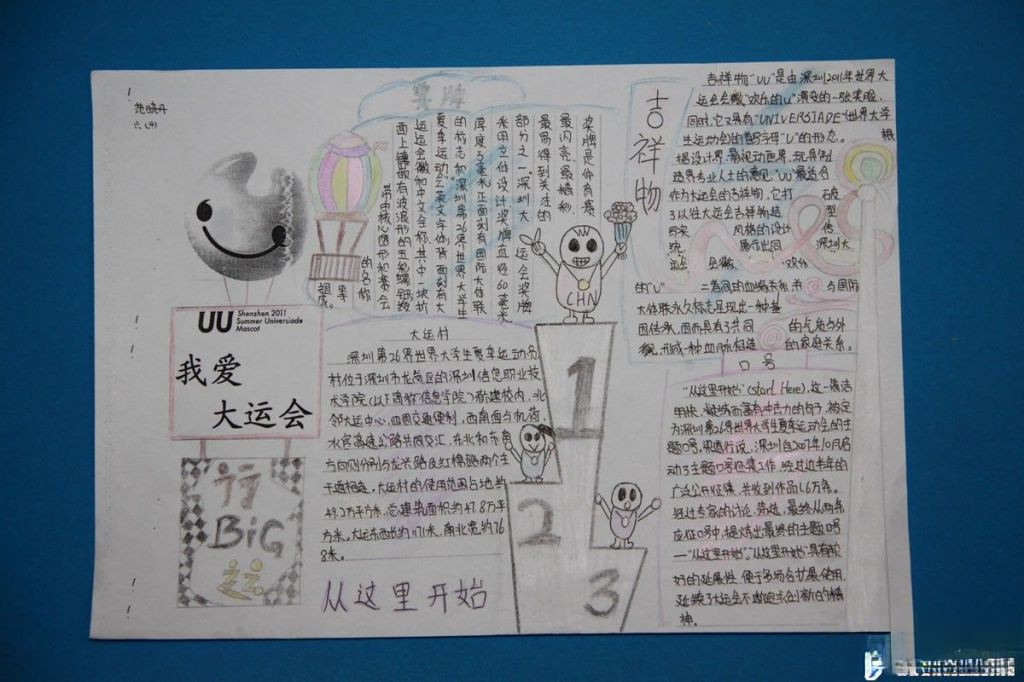 范晓丹
六(4)
UU Shenzhen 2011
Summer Universiade
Mascot
我爱
大运会
行
BiG
运
奖牌
奖牌是所有赛
最闪亮、最精彩、
最易得到关注的
部分之一。深圳大
运会奖牌
采用立体设计奖牌直径60毫米
厚度5毫米正面刻有国际大体联
的标志和深圳第26界世界大学生
夏季运动会英文字体背面刻有大
运会会徽和中文全称其中一块扩
面上镶嵌有波浪形的五轮
的名称
组成。
大运村
深圳第26界世界大学生夏季运动员
村位于深圳市龙岗区的深圳信息职业技
术学院(以下简称“信息学院”)新建校内,北
邻大运中心,四周交通便利,西南面与机荷、
水官高速公路共同交汇,东北和东南
方向则分别与龙兴路及红棉路两个主
干道相连。大运村的使用范围占地约
49.2万平方米,总建筑面积约47.8万平
方米。大运东西长约1171米,南北宽约76
8米。
从这里开始
CHN
1
2
3
吉祥物
吉祥物“UU”是由深圳2011年世界大
运会会徽“欢乐的U”演变的一张笑脸,
同时,它又具有“UNIVERSIADE”(世界大学
生运动会)的首写字母“U”的形态。 根
据设计界、影视动画界、玩具制
造界专业人士的意见“UU”最适合
作为大运会的吉祥物,它打 破
了以往大运会吉祥物造 型
风格的设计 传
统, 深圳大
运会 会徽 “欢乐
的“U” 二者间的血脉关系 与国际
大体联永久标志呈现出一种基
因传承,因而具有了共同 的气质与外
貌,形成一种血脉相连 的家庭关系。
口号
“从这里开始”(Start Here),这一简洁
明快、凝练而富有冲击力的句子,被定
为深圳第26界世界大学生夏季运动会的主
题口号,梁道行说,深圳自2007年10月启
动了主题口号征集工作,经过近半年的
广泛公开征集,共收到作品1.6万条。
经过专家的讨论、筛选,最终从两条
应征口号中,提炼出最终的主题口号
—“从这里开始”。“从这里开始”具有较
好的延展性,便于多场合扩展使用,
延续了大运会不断追求创新的精
神。